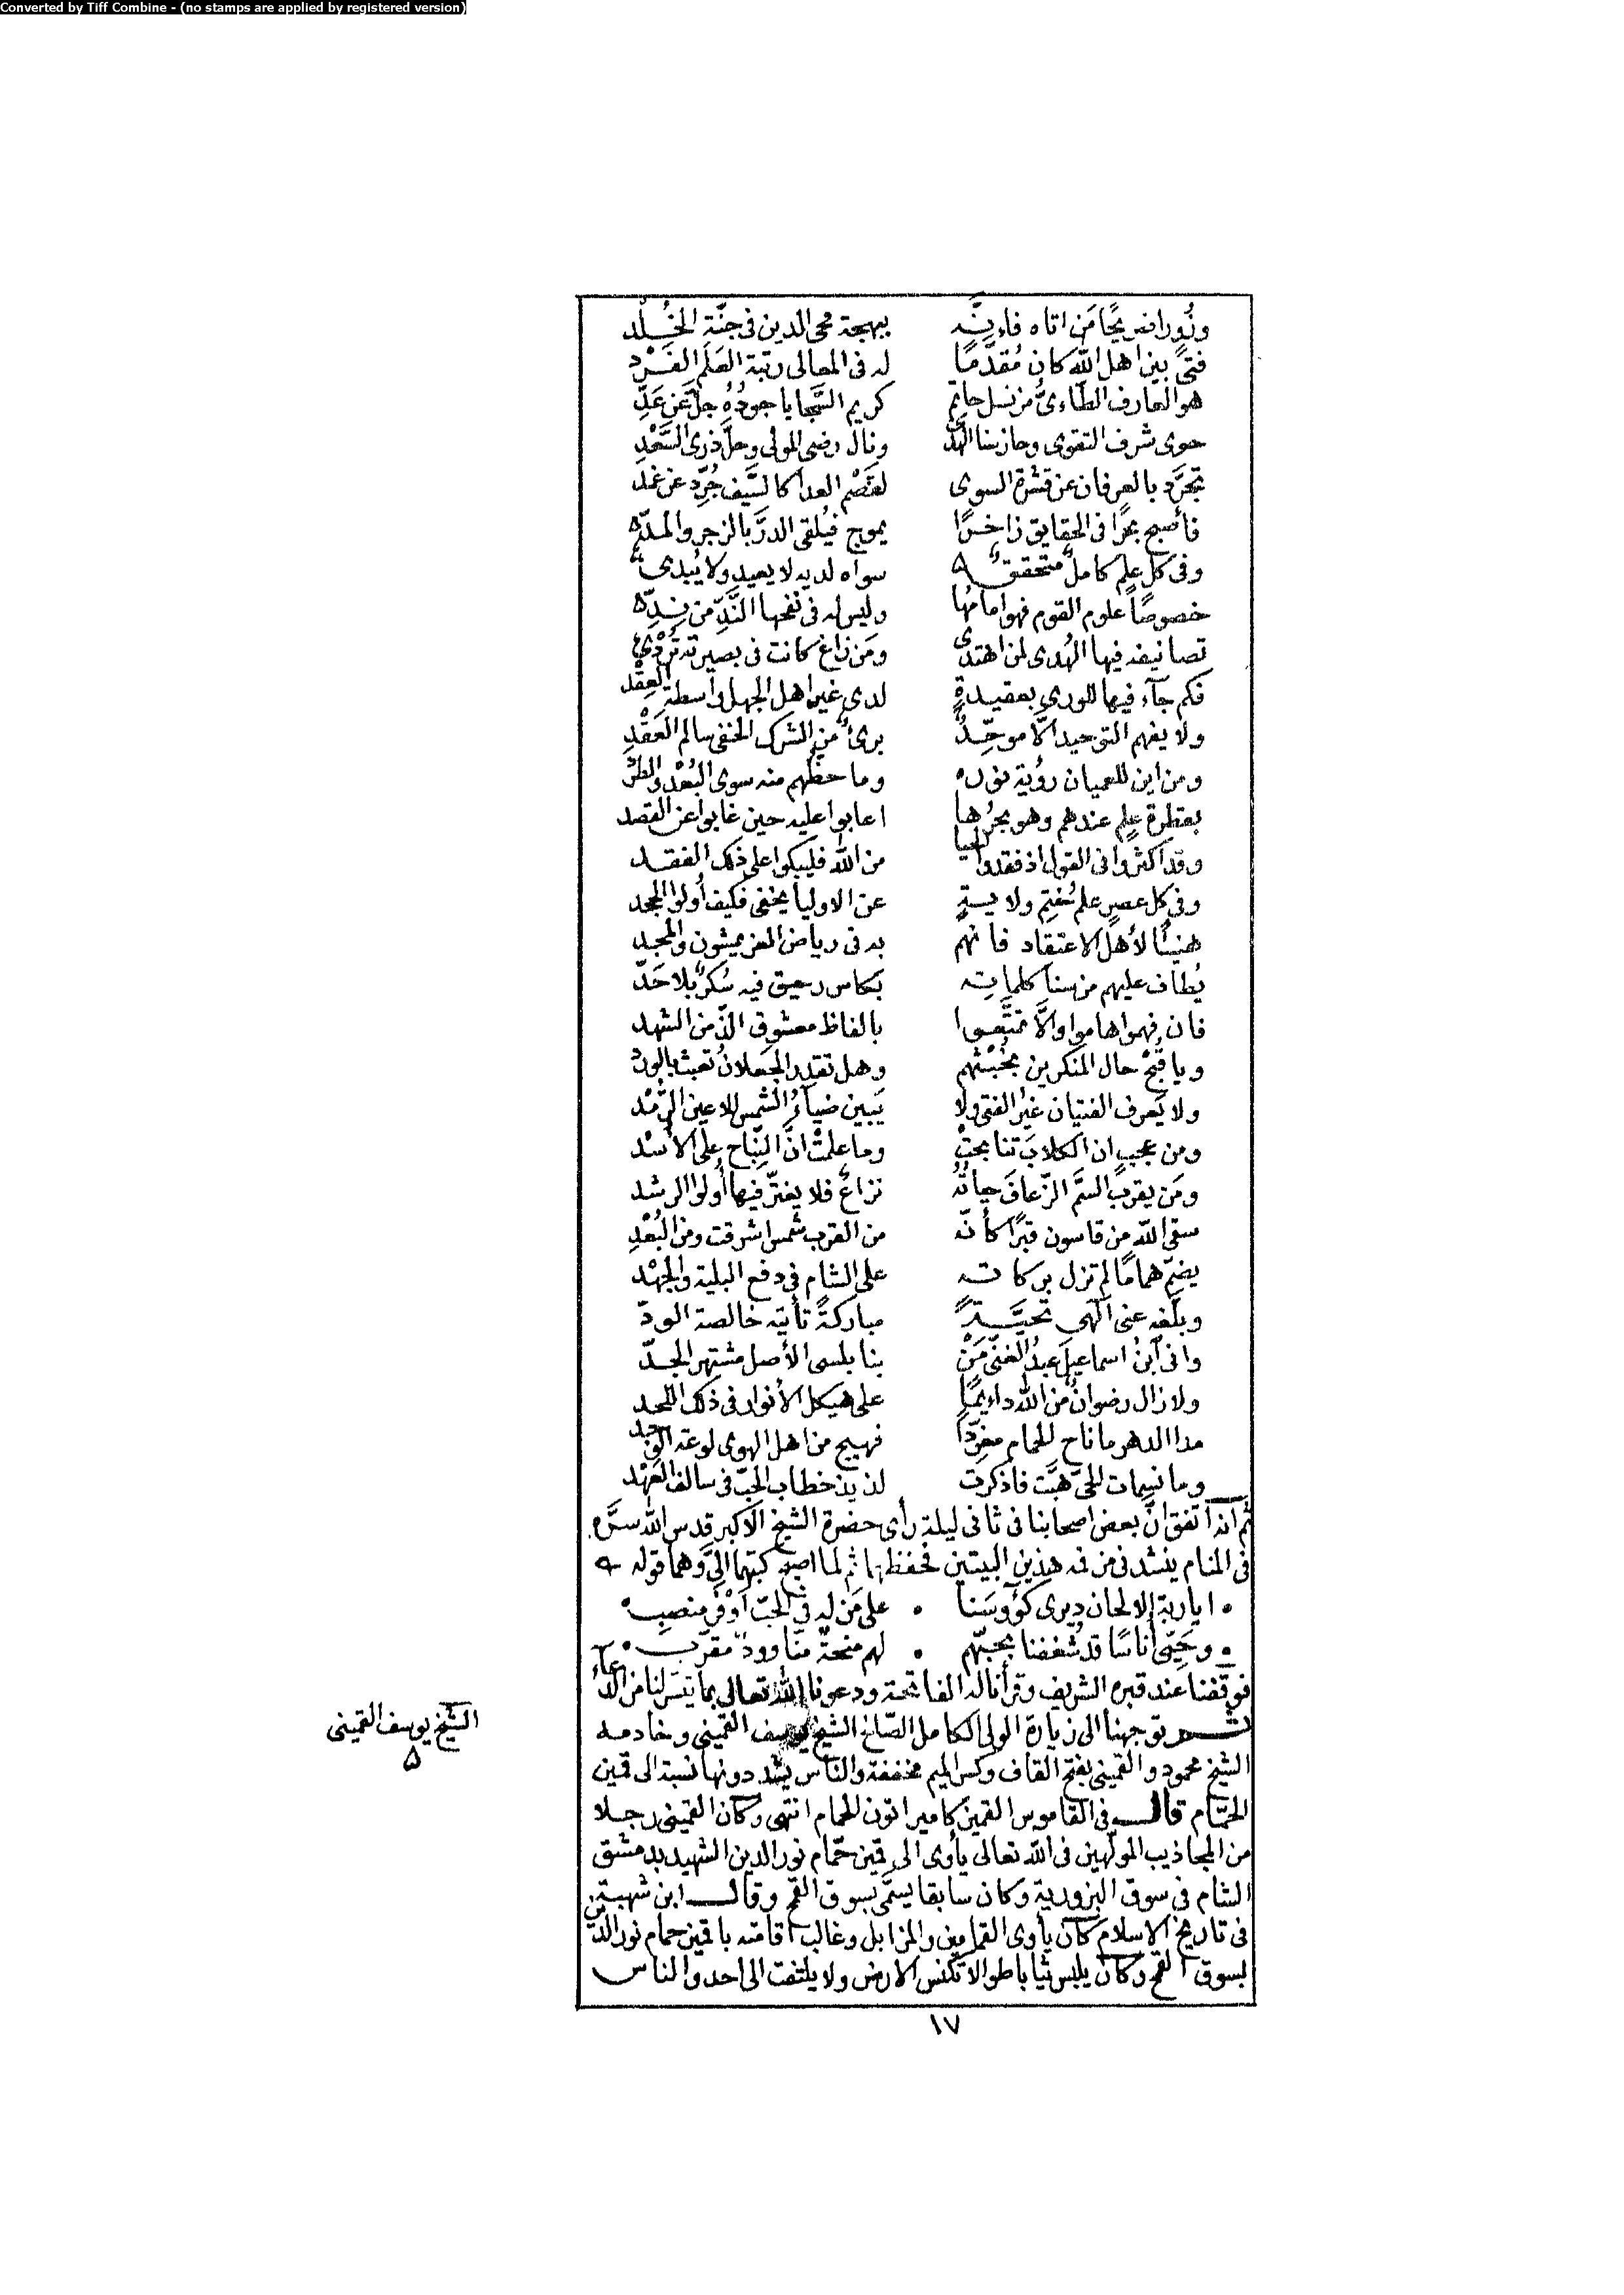 Converted by Tiff Combine - (no stamps are applied by registered version)
وزُوّرا ضريحًا مَن اتاه فاءنَّه ببهجة محى الدين فى جنّة الخُلد
فتىً بين اهل الله كان مُقدّمًا له فى المعالى رتبة العَلَم الفَرْد
هو العارف الطاءىُّ من نسل حاتمٍ كريم السَّجايا جودُهُ جلّ عن عَدِّ
حوى شرف التقوى وحاز سنا الهُدَى ونال رضى المولى وحلَّ ذرى السَّعْدِ
تجرَّد بالعرفان عن قشرة السوى لقصْم العدا كالسَّيف جُرِّد عن غمد
فأصبح بحرًا فى الحقايق زاخرًا يموج فيُلقى الدرَّ بالزجر والمدّ
وفى كل علمٍ كاملٌ متحققٌ سواه لديه لا يعيد ولا يُبدى
خصوصًا علوم القوم فهو امامُها وليس له فى نفحها النَّدِّ من نِدِّ
تصانيفه فيها الهُدى لمن اهتدى ومَن زاغ كانت فى بصيرته تُرْدى
فكم جآء فيها للورى بعقيدةٍ لدى غير اهل الجهل واسطة العِقْد
ولا يفهم التوحيد الّا موحِّدٌ برىءٌ من الشرك الخفى سالم العَقْدِ
ومن اين للعميان رؤية نوره وما حظهم منه سوى البُعْد والطرد
بقطرة علمٍ عندهم وهو بحرُها اعابوا عليه حين غابوا عن القصد
وقد اكثروا فى القول اذ فقدوا الحيا من الله فليبكوا على ذلك الفقد
وفى كل عصرٍ علم ختم ولايةٍ عن الاوليا يخفى فكيف أولوا الجحد
هنيئًا لأهل الاعتقاد فانهم به فى رياض العز يمشون والمجد
يُطاف عليهم من سنا كلماته بكاس رحيق فيه سُكرٌ بلا حَدّ
فان فهموا هاموا والّا تمتَّعوا بالفاظ معشوق الذّ من الشهد
ويا قُبْحَ حال المنكرين بخُبْثهم وهل تقدر الجعلانُ تعبث بالورد
ولا يَعرف الفتيان غيرُ الفتى ولا يَبين ضياءُ الشمس للاعين الرُّمْد
ومن عجبٍ ان الكلابَ تنابحتْ وما علمتْ انَّ النّباح على الأُسْد
ومَن يقرب السمَّ الزّعافَ حياتُه نزاعٌ فلا يغترّ فيها أولوا الرشد
سقى الله من قاسون قبرًا كأنّه من القرب شمس اشرقت ومن البُعْدِ
يضمّ همامًا لم تزل بركاته على الشام فى دفع البلية والجهْد
وبلّغه عنى الٰهى تحيَّةً مباركةً تأتيه خالصة الودّ
وانى ابنُ اسماعيل عبدُ الغنىّ مَنْ بنابلسى الأصل مشتهر الجدّ
ولا زال رضوانٌ من الله داءيمًا على هيكل الأنوار فى ذلك اللحد
مدا الدهر ما ناح الحمام مغرّدًا فهيج من اهل الهوى لوعة الوَجد
وما نسمات الحىّ هبّت فاذكرت لذيذ خطاب الحبّ فى سالف العَهْد
ثم انه اتفق انّ بعض اصحابنا فى ثانى ليلة رأى حضرة الشيخ الاكبر قدس الله سرَّه
فى المنام ينشد فى من فمه هذين البيتين فحفظها ثم لما اصبح كتبهما الىَّ وهما قوله
ايا ربة الالحان ديرى كؤوسَنا ٠ على مَن له فى الحبّ اوْفر منصب ٠
وحَيِّى أناسًا قد شُغفنا بحبّهم ٠ لهم منحةٌ منّا وودٌّ مقرّب ٠
فوقفنا عند قبره الشريف وقرأنا له الفاتحة ودعونا الله تعالى بما تيسّر لنا من الدعاء
ثم توجهنا الى زيارة الولى الكامل الصّالح الشيخ يوسف القمينى وخادمه
الشيخ يوسف القمينى
٥
الشيخ محمود والقمينى بفتح القاف وكسر الميم مخففة والناس يشددونها نسبة الى قمين
الحمّام قال فى القاموس القمين كامير اتون الحمام انتهى وكان القمينى رجلا
من المجاذيب المولّهين فى الله تعالى يأوى الى قمين حمّام نور الدين الشهيد بدمشق
الشام فى سوق البزورية وكان سابقا يسمّى بسوق القمح وقال ابن شهبة
فى تاريخ الاسلام كان يأوى القمامين والمزابل وغالب اقامته باقمين حمام نور الدين
بسوق القمح وكان يلبس ثيابا طوالا تكنس الارض ولا يلتفت الى احد والناس
١٧